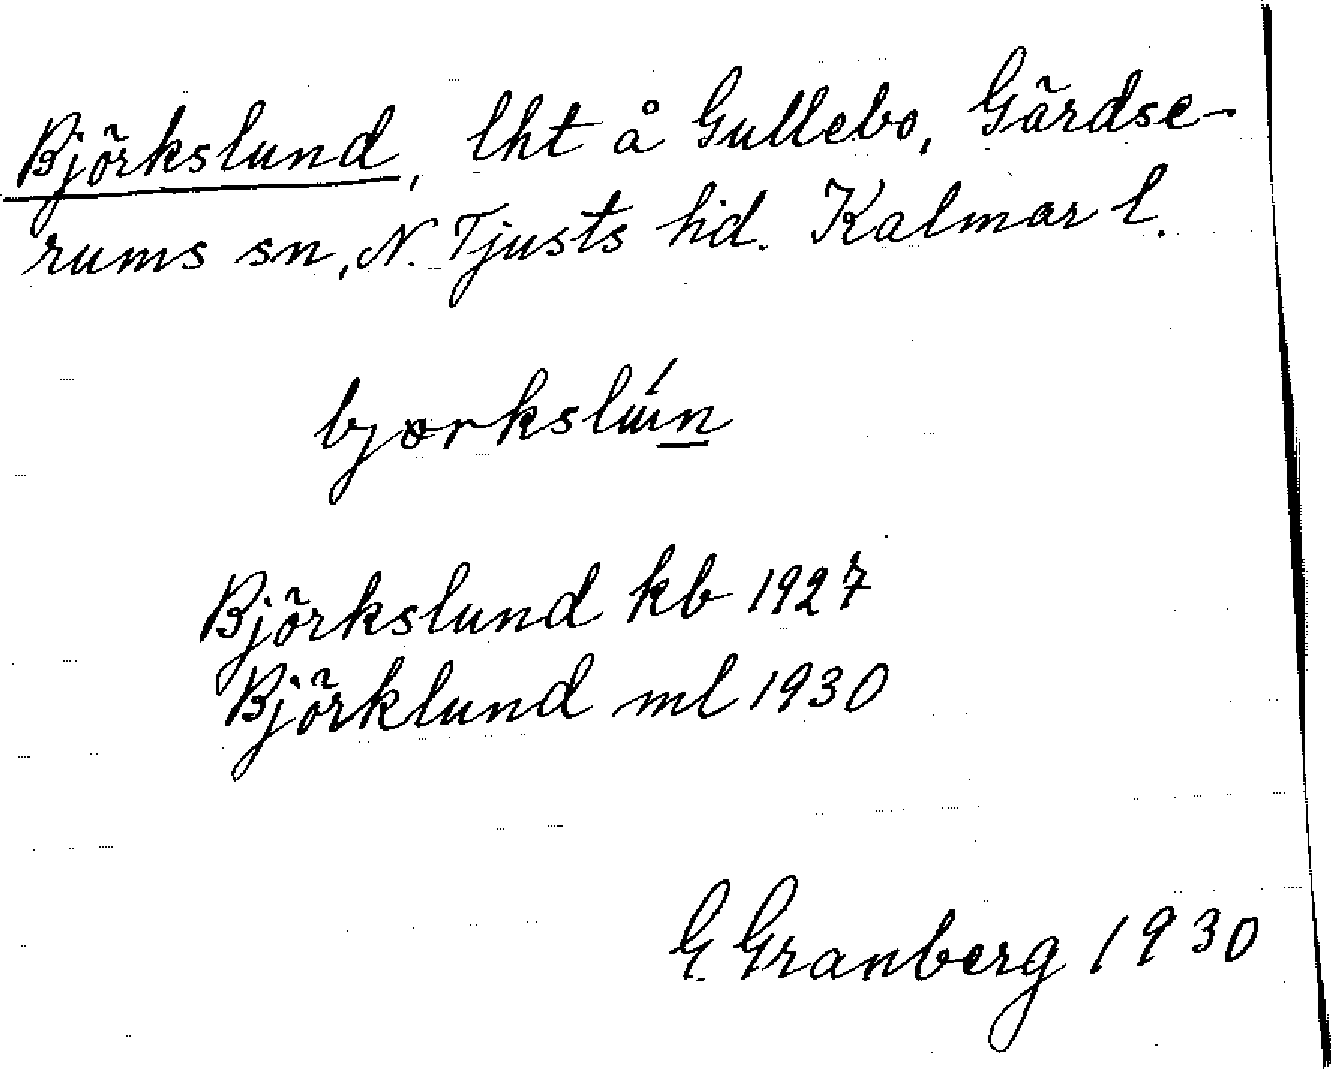 Björkslund, lht å Gullebo, Gärdse-
rums sn, N. Tjusts hd. Kalmar l.
Björkslund kb 1927
Björklund ml 1930
G. Granberg 1930